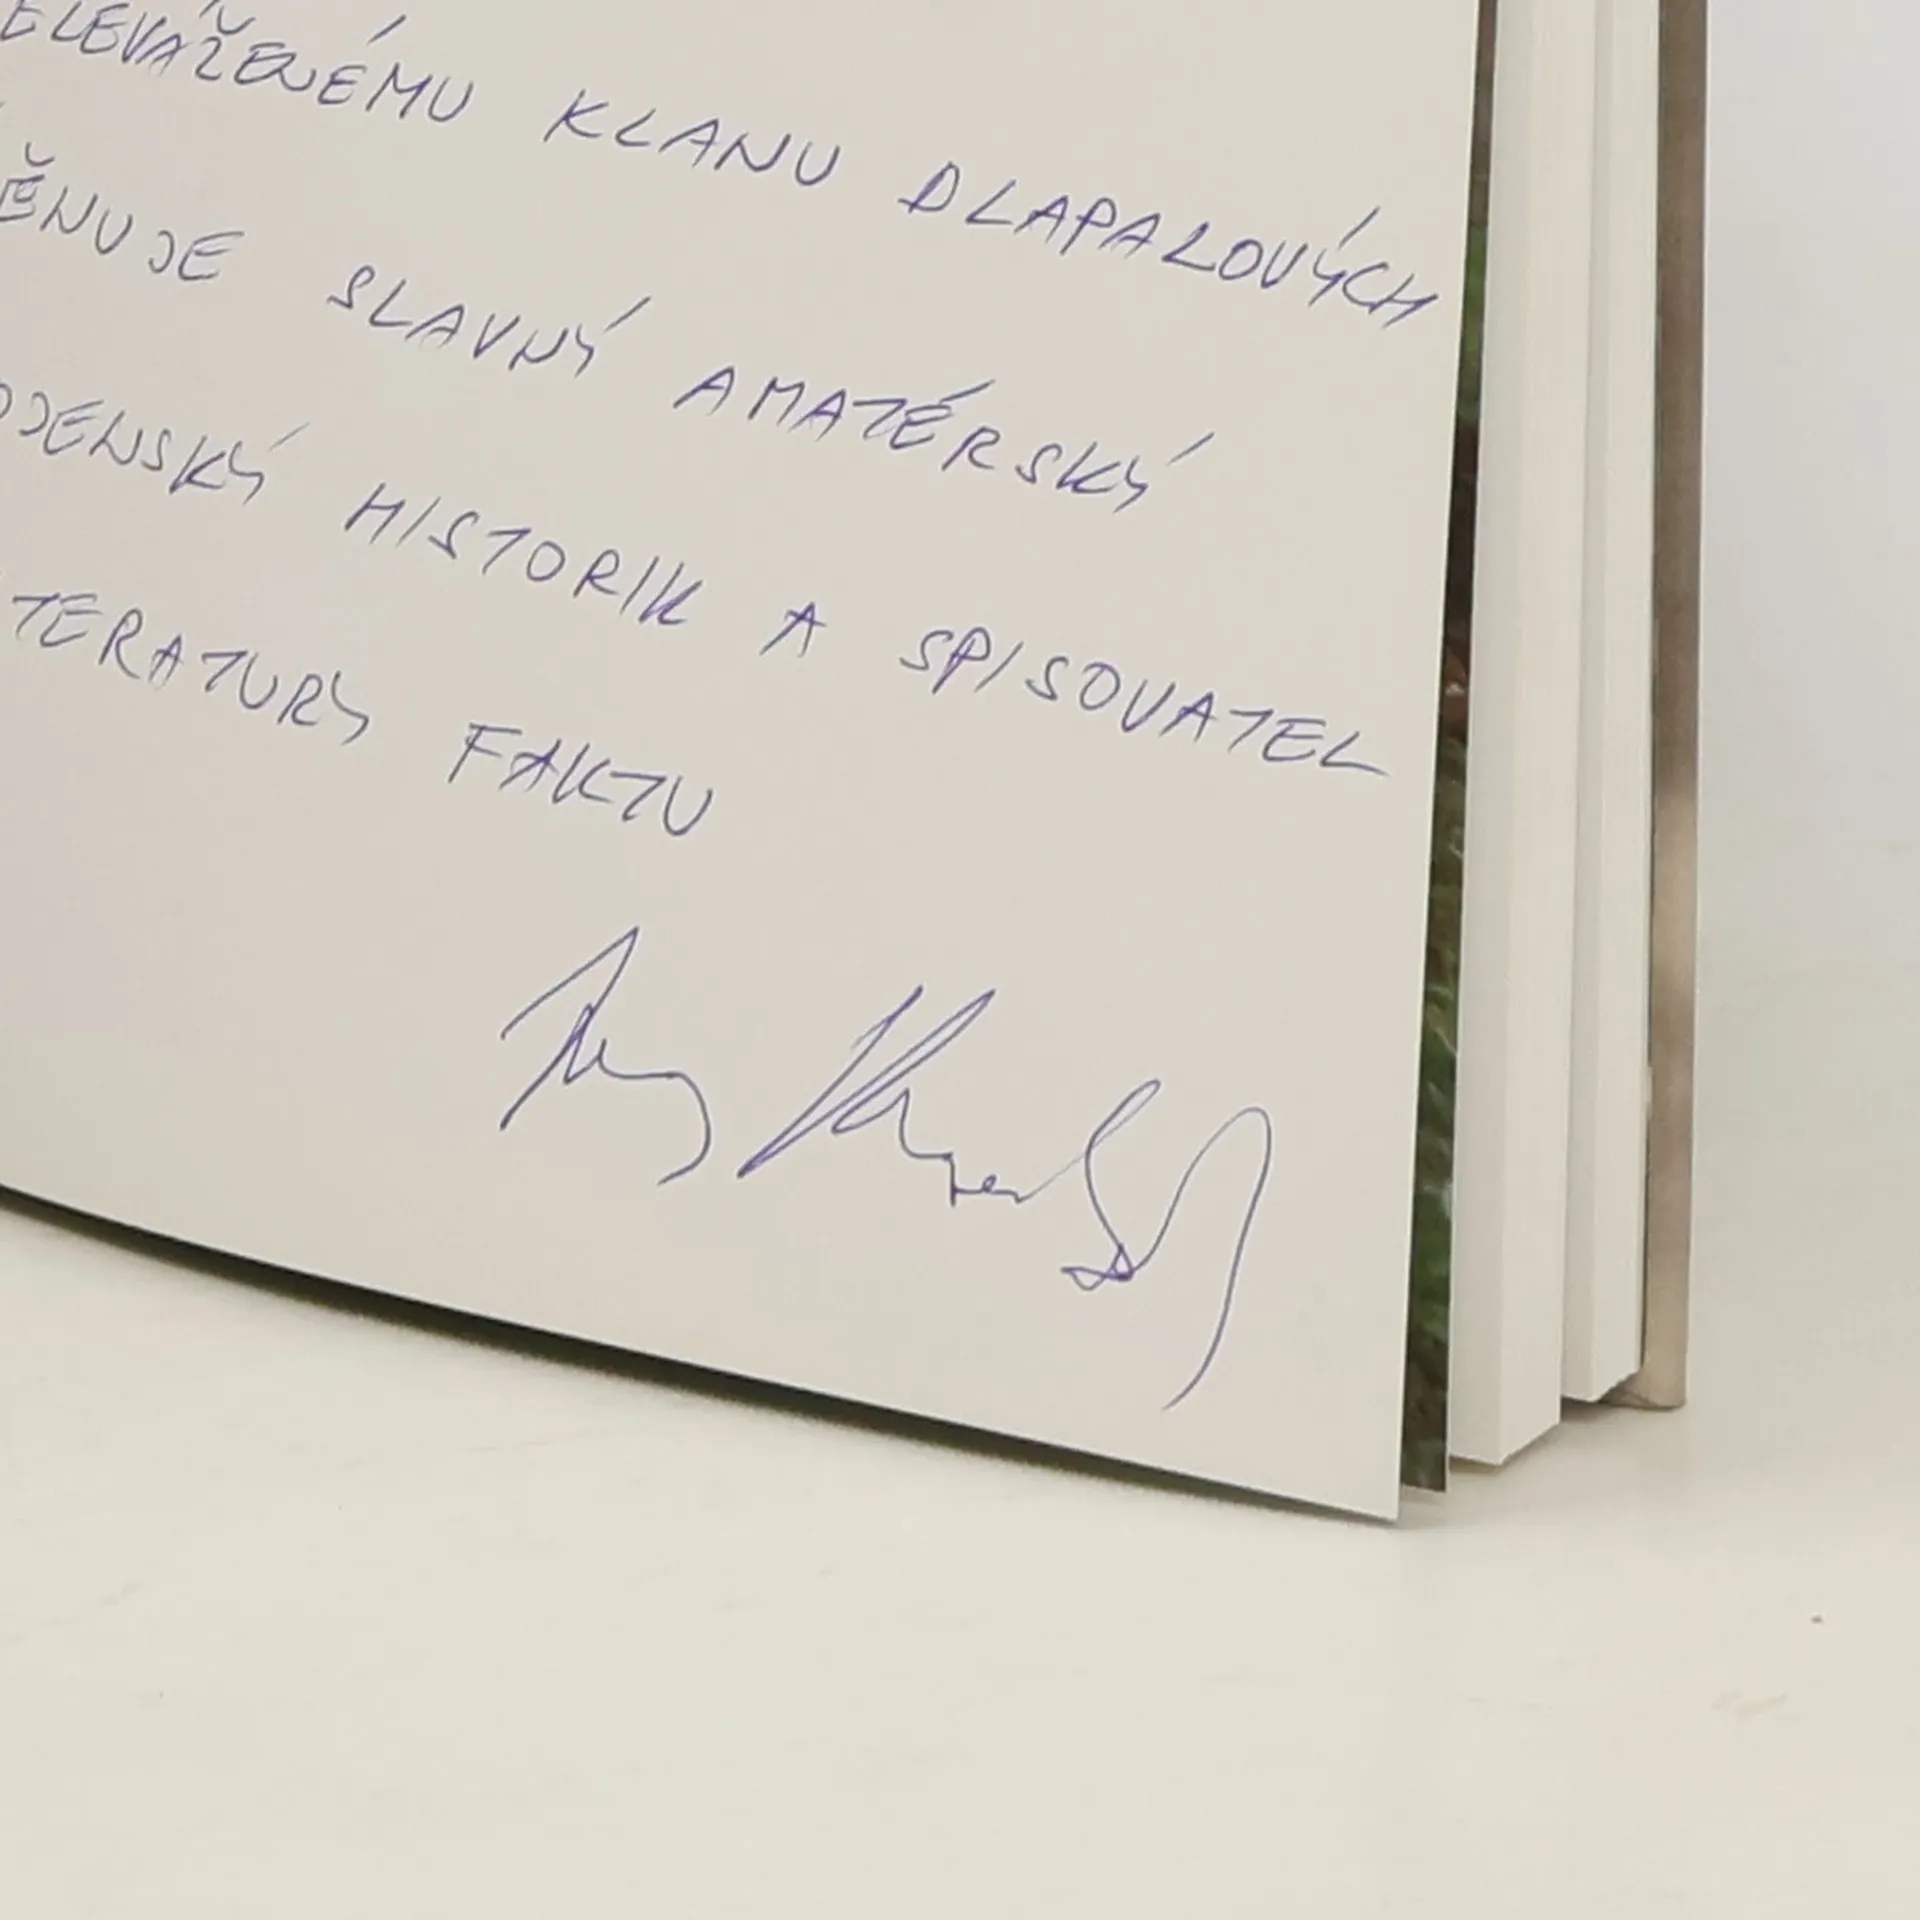 ELEVÁŽENÉMU KLANU DLAPALOVÝCH
ĚNUJE SLAVNÝ AMATÉRSKÝ
OJENSKÝ HISTORIK A SPISOVATEL
TERATURY FAKTU